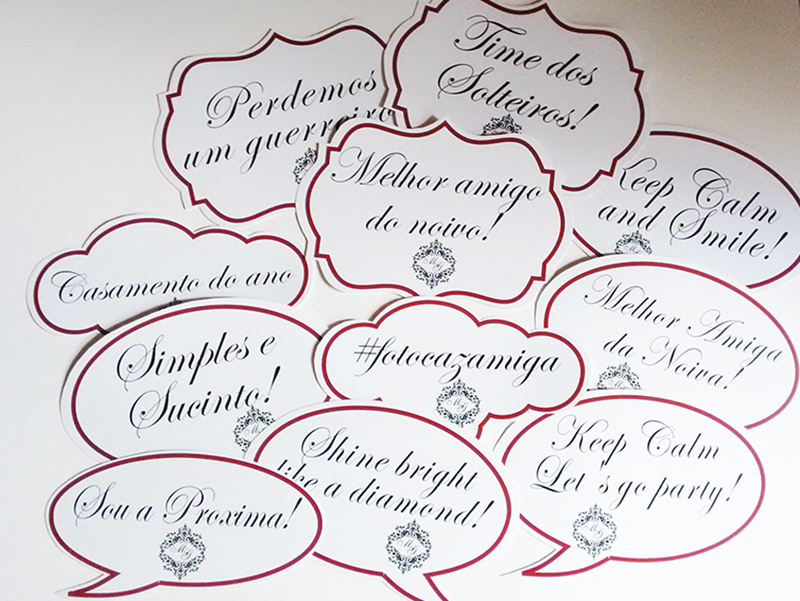 Perdemos
um guerreiro
Time dos
Solteiros!
Melhor amigo
do noivo!
Keep Calm
and Smile!
Casamento do ano
Simples e
Sucinto!
#fotocazamiga
Melhor Amiga
da Noiva!
Sou a Proxima!
Shine bright
like a diamond!
Keep Calm
Let's go party!